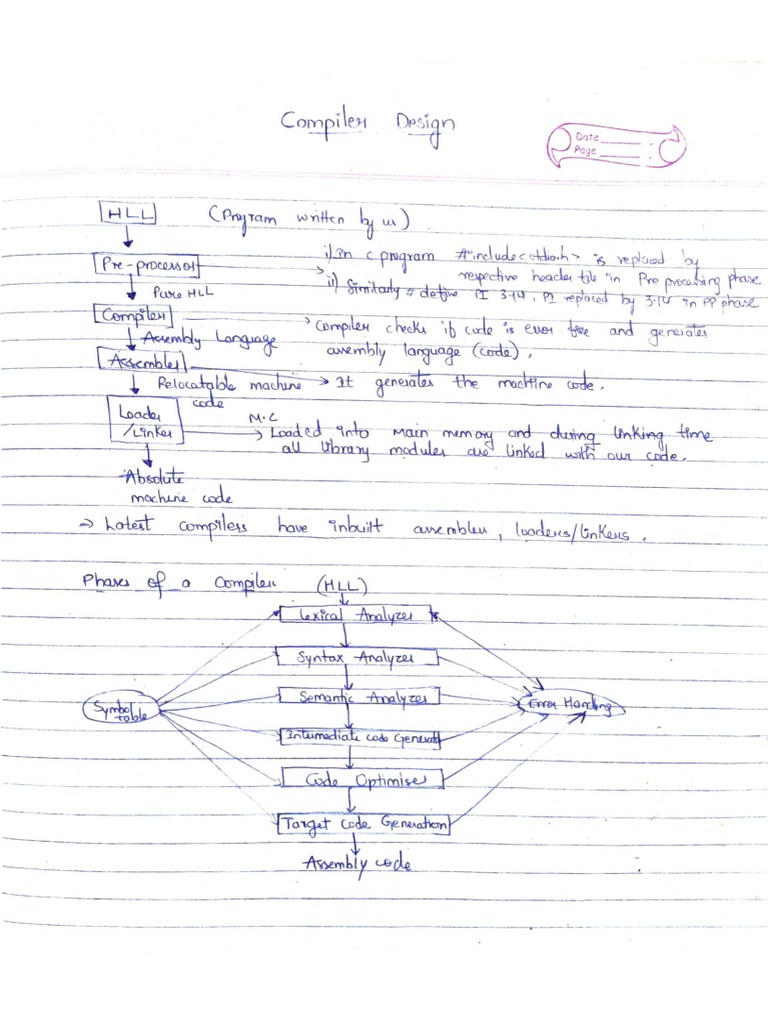 Compiler Design
Date
Page
HLL (Program written by us)
Pre-processor → i) In c program #include<stdio.h> is replaced by
respective header file in Pre processing phase
ii) Similarly # define PI 3.14, PI replaced by 3.14 in PP phase
Pure HLL
Compiler → Compiler checks if code is error free and generates
assembly language (code).
Assembly Language
Assembler → It generates the machine code.
Relocatable machine
code
Loader
/Linker
M.C
→ Loaded into Main memory and during linking time
all library modules are linked with our code.
Absolute
machine code
→ Latest compilers have inbuilt assembler, loaders/linkers.
Phases of a Compiler (HLL)
Lexical Analyzer
Syntax Analyzer
Semantic Analyzer
Symbol
table
Error Handling
Intermediate code Generat
Code Optimiser
Target Code Generation
Assembly code